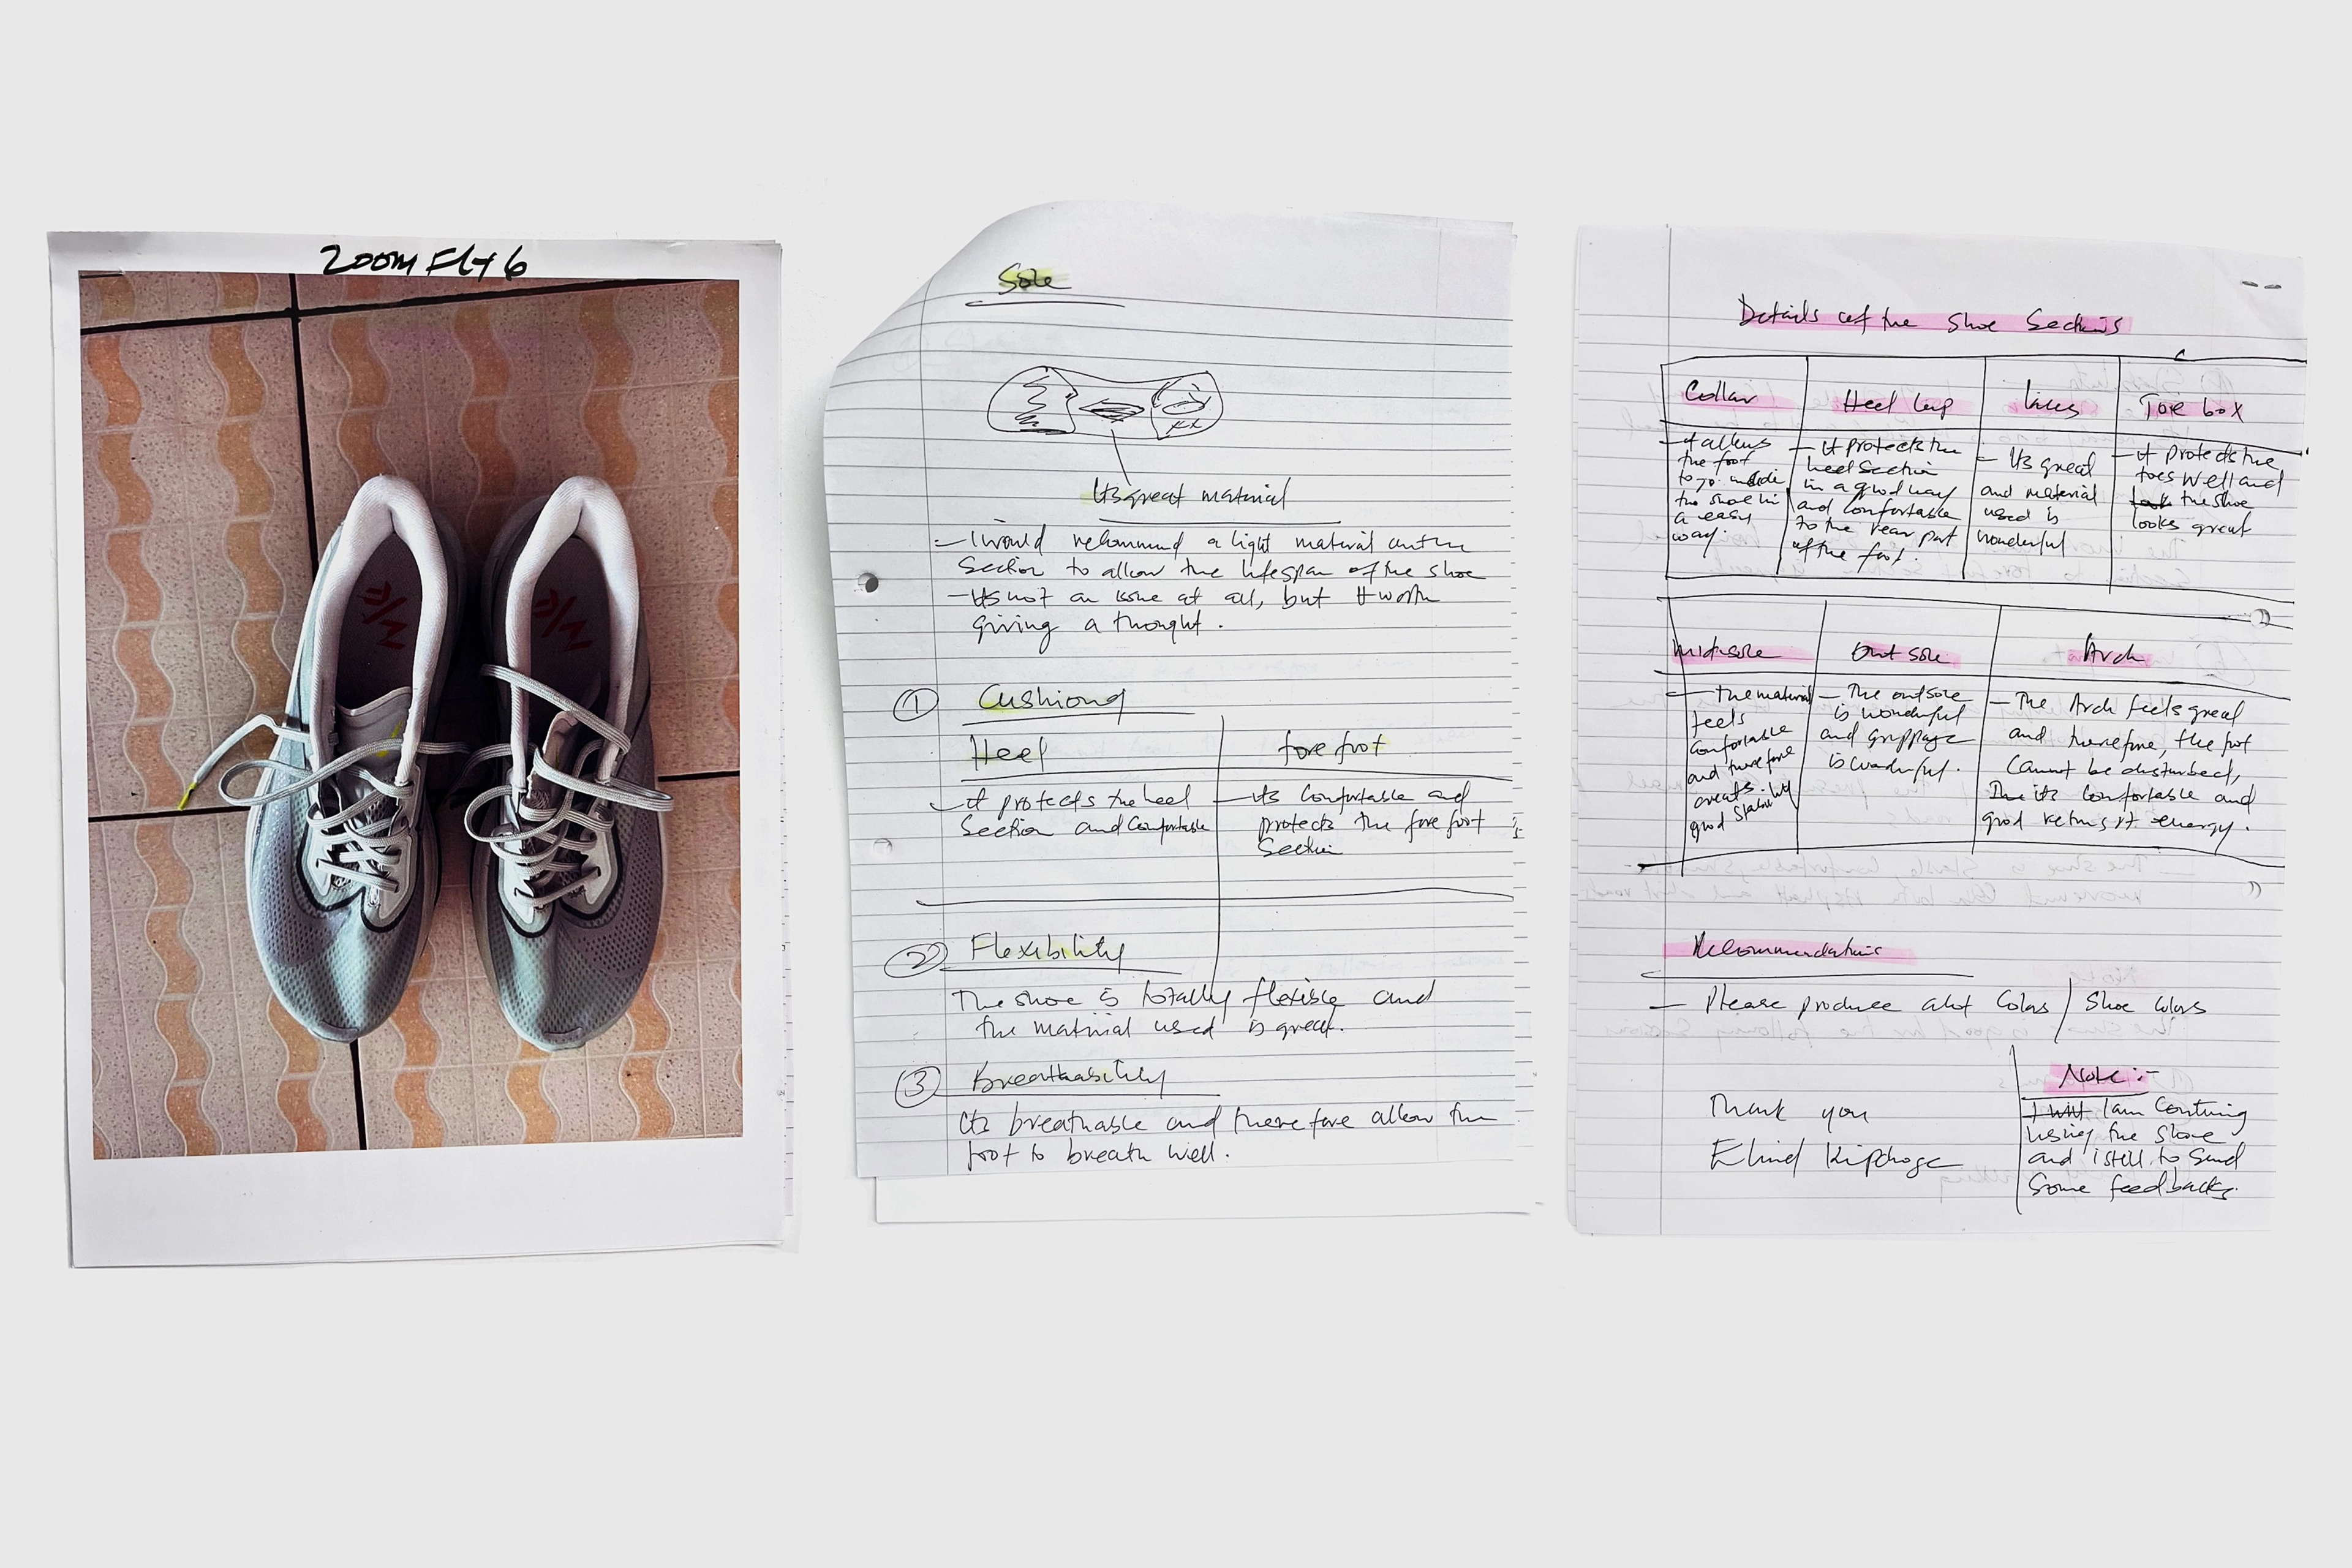 ZOOM FLY 6
Sole
Its great material
- I would recommend a light material on the
Section to allow the lifespan of the shoe
- Its not an issue at all, but It worth
giving a thought.
① Cushiong
Heel
fore foot
- it protects the heel
Section and Comfortable
- its Comfortable and
protects the fore foot
Section
② Flexibility
The shoe is totally flexible and
the material used is great.
③ Breathability
Its breathable and therefore allow the
foot to breath well.
Details of the Shoe Sections
Collar
- it allows
the foot
to go inside
the shoe in
a easy
way.
Heel Cup
- It protects the
heel Section
in a good way
and comfortable
to the rear part
of the foot.
laces
- Its great
and material
used is
wonderful
Toe box
- it protects the
toes well and
the shoe
looks great
midsole
- the material
feels
comfortable
and therefore
good stability
Out sole
- The outsole
is wonderful
and grippage
is wonderful.
Arch
- The Arch feels great
and therefore, the foot
Cannot be disturbed,
its comfortable and
good returns energy.
Recommendations
- Please produce alot Colors / Shoe Colors
Thank you
Eliud Kipchoge
Note:-
I will I am Continuing
using the shoe
and i still to Send
Some feedbacks.